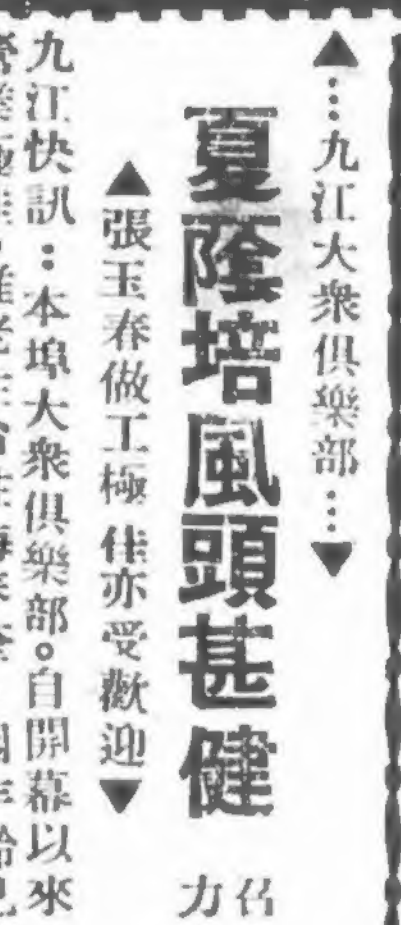 ▲…九江大衆俱樂部…▼
夏蔭培風頭甚健
召力
▲張玉春做工極佳亦受歡迎▼
九江快訊：本埠大衆俱樂部。自開幕以來